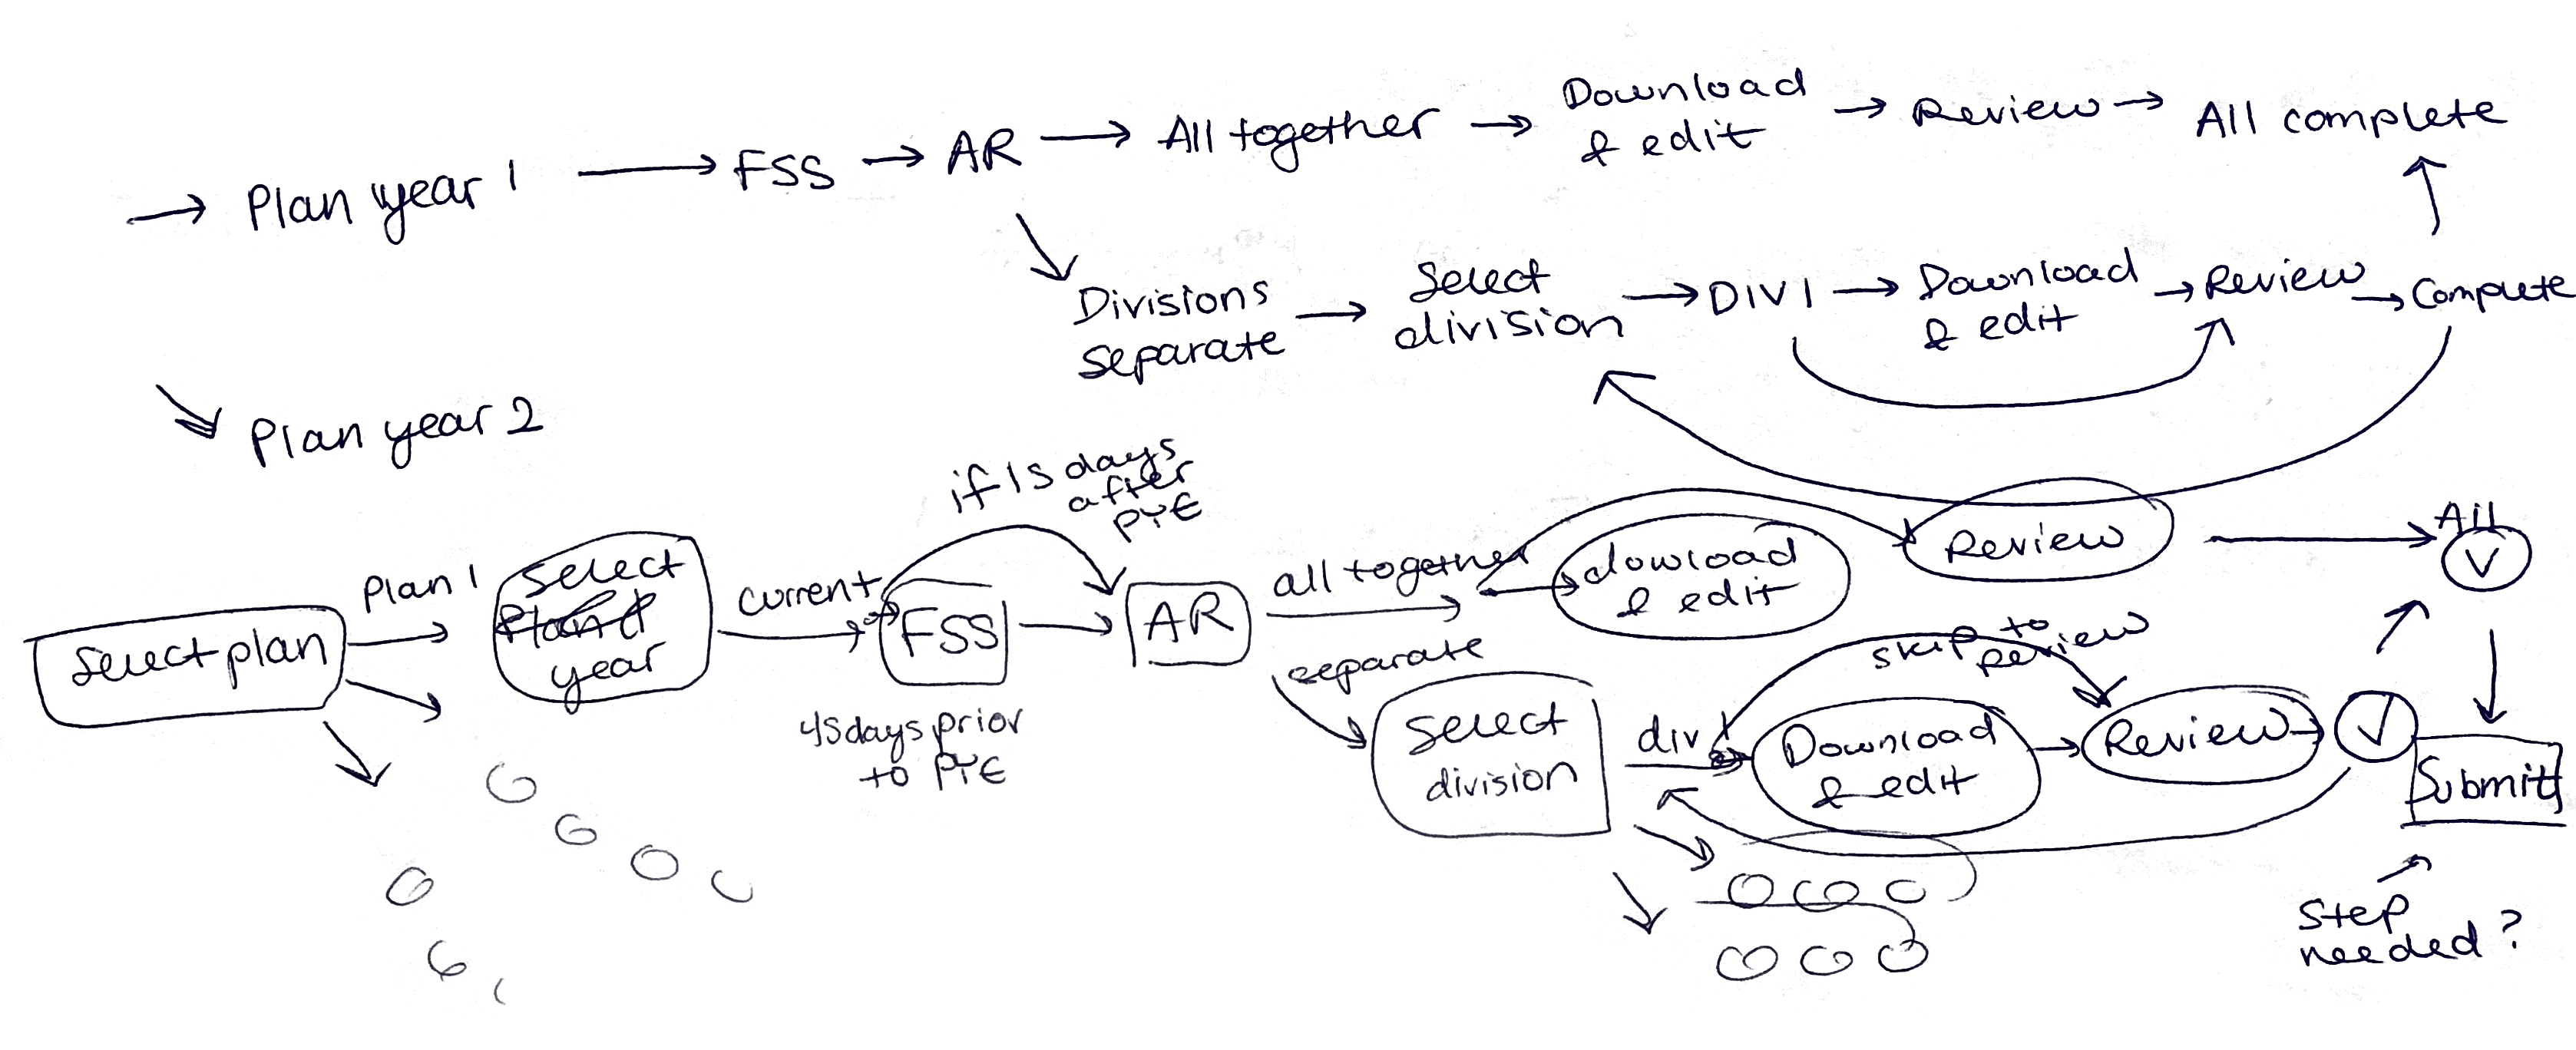 Plan year 1
FSS
AR
All together
Download
& edit
Review
All complete
Divisions
separate
Select
division
DIV 1
Download
& edit
Review
Complete
Plan year 2
if 15 days
after
PYE
Select plan
Plan 1
Select
year
current
FSS
45 days prior
to PYE
AR
all together
dowload
& edit
Review
All
separate
Select
division
div 1
skip to
review
Download
& edit
Review
Submit
Step
needed?